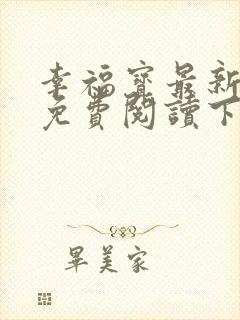 幸福寶最新
免費閱讀下
畢美家